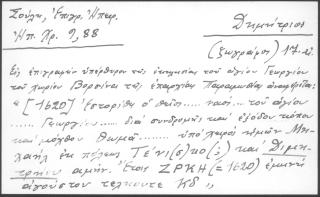 Σούλη, Ἐπιγρ. Ἠπειρ.
Ἠπ. Χρ. 9, 88
Δημήτριος
(ζωγράφος) 17 αἰ.
Εἰς ἐπιγραφὴν ὑπέρθυρον τῆς ἐκκλησίας τοῦ ἁγίου Γεωργίου
τοῦ χωρίου τῆς ἐπαρχίας Παραμυθίας ἀναφέρεται:
« [1620] Ἱστορίθη ὁ θεῖος..... ναὸς... τοῦ ἁγίου
...... Γεωργίου.... διὰ συνδρομῆς καὶ ἐξόδου κόπου
καὶ μόχθου Θωμᾶ........ ὑπὸ χειρὸς ἡμῶν Μι-
χαὴλ ἐκ πόλεως Τένι(σ)κο(ς;) καὶ Διμι-
τρίου ἀμήν. Ἔτος ΖΡΚΗ (= 1620) ἐμινὴ
αὐγούστου τελιοῦτε ΚΔ »